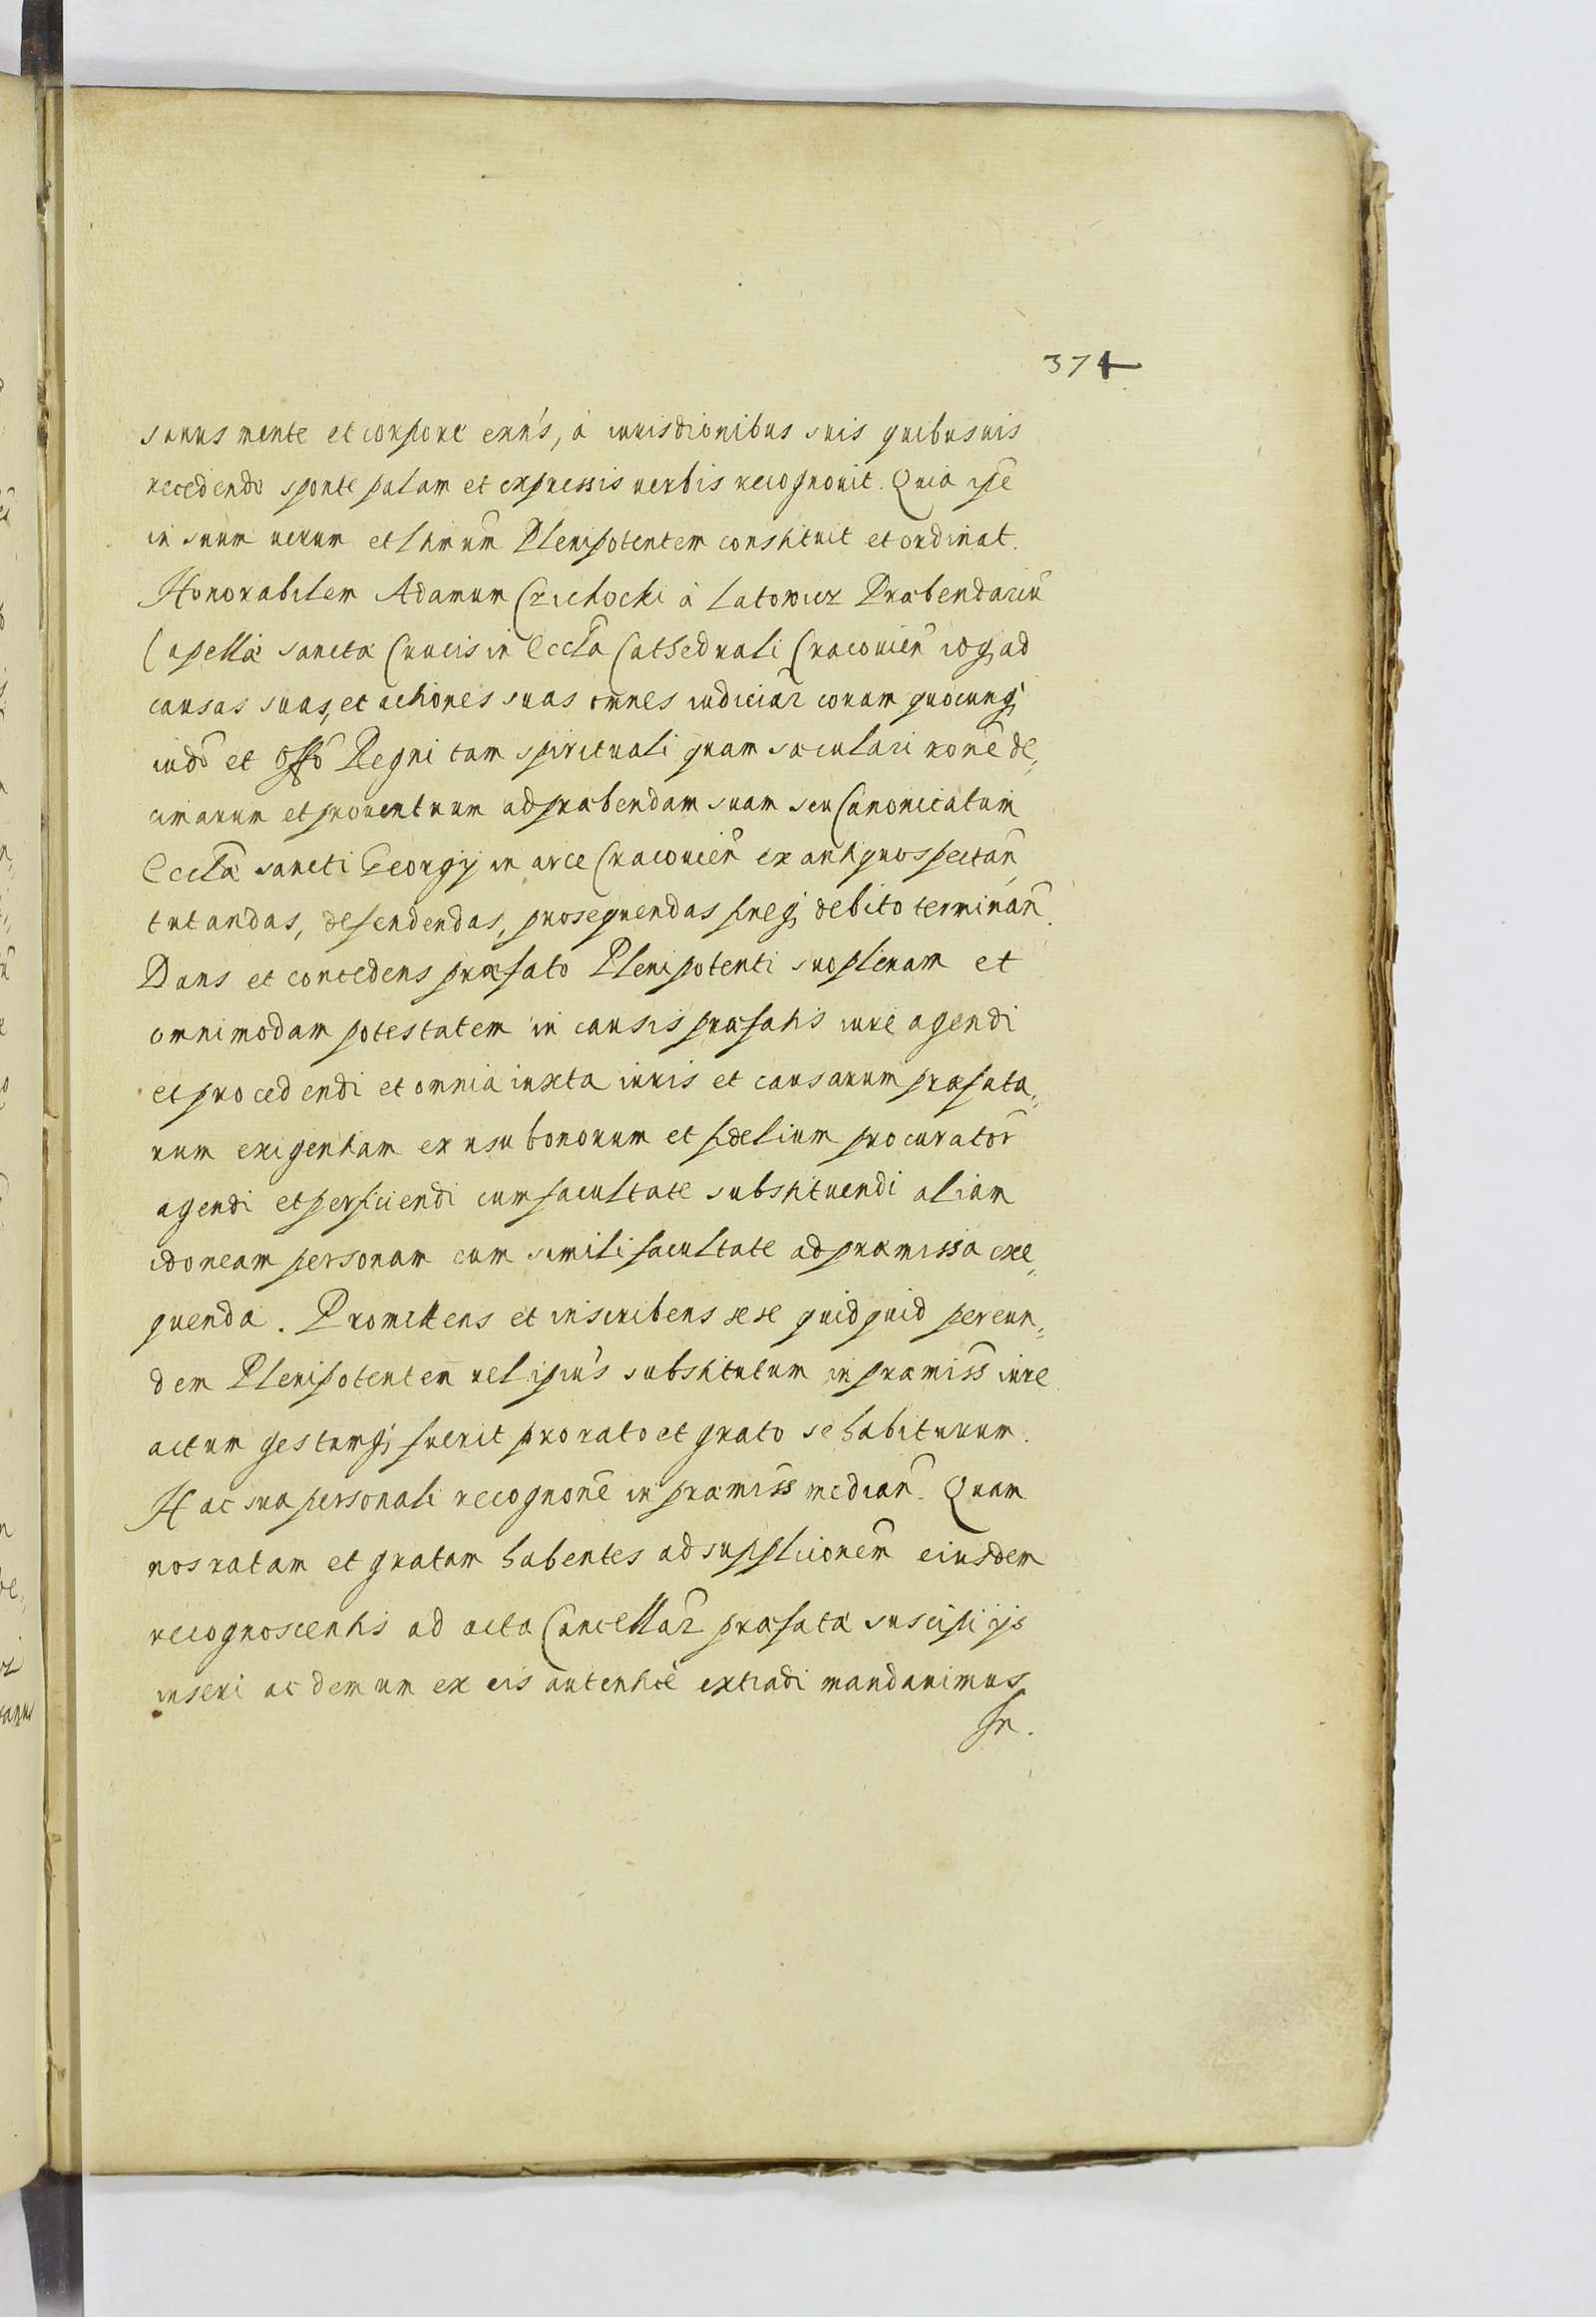 374
sanus mente et corpore exñs, à iurisdionibus suis quibusuis
recedendo sponte palam et expressis verbis recognouit. Quia ipẽ
in suum uerum et lñmum Plenipotentem constituit et ordinat.
Honorabilem Adamum Czichocki à Latowicz Præbendariũ
Capellæ sanctæ Crucis in Eccla Cathedrali Cracouien̄ idq; ad
causas suas, et actiones suas omnes iudiciar̃ coram quocunq;
iudõ et Offõ Regni tam spirituali quam sæculari ronẽ de„
cimarum et prouentuum ad præbendam suam seu Canonicatum
Ecclæ sancti Georgij in arce Cracouien̄ ex antiquo spectan̄
tutandas, defendendas, prosequendas fineq; debito terminan̄.
Dans et concedens præfato Plenipotenti suo plenam et
omnimodam potestatem in causis præfatis iure agendi
et procedendi et omnia iuxta iuris et causarum præfata„
rum exigentiam ex usu bonorum et fidelium procurator̃
agendi et perficiendi cum facultate substituendi aliam
idoneam personam cum simili facultate ad præmissa exe„
quenda. Promittens et inscribens sese quidquid per eun„
dem Plenipotentem uel ipiu's substitutum in præmiss̃ iure
actum gestumq; fuerit pro rato et grato se habiturum.
Hac sua personali recognonẽ in præmiss̃ median̄. Quam
nos ratam et gratam habentes ad supplicionem̃ eiusdem
recognoscentis ad acta Cancellar̃ præfatæ suscipi ijs
inseri ac demum ex eis autenticẽ extradi mandauimus